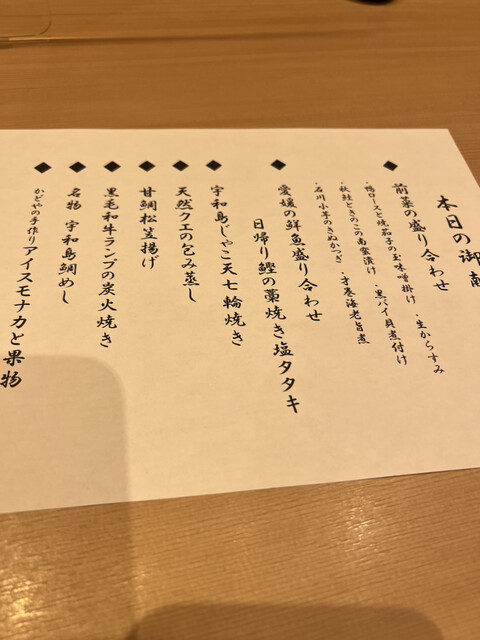 本日の御献
◆ 前菜の盛り合わせ ・生からすみ
・鴨ロースと焼茄子の玉味噌掛け ・黒バイ貝煮付け
・秋鮭ときのこの南蛮漬け
・石川小芋のきぬかつぎ ・才巻海老旨煮
◆ 愛媛の鮮魚盛り合わせ
日帰り鰹の藁焼き塩タタキ
◆ 宇和島じゃこ天七輪焼き
◆ 天然クエの包み蒸し
◆ 甘鯛松笠揚げ
◆ 黒毛和牛ランプの炭火焼き
◆ 名物 宇和島鯛めし
◆ かどやの手作りアイスモナカと果物